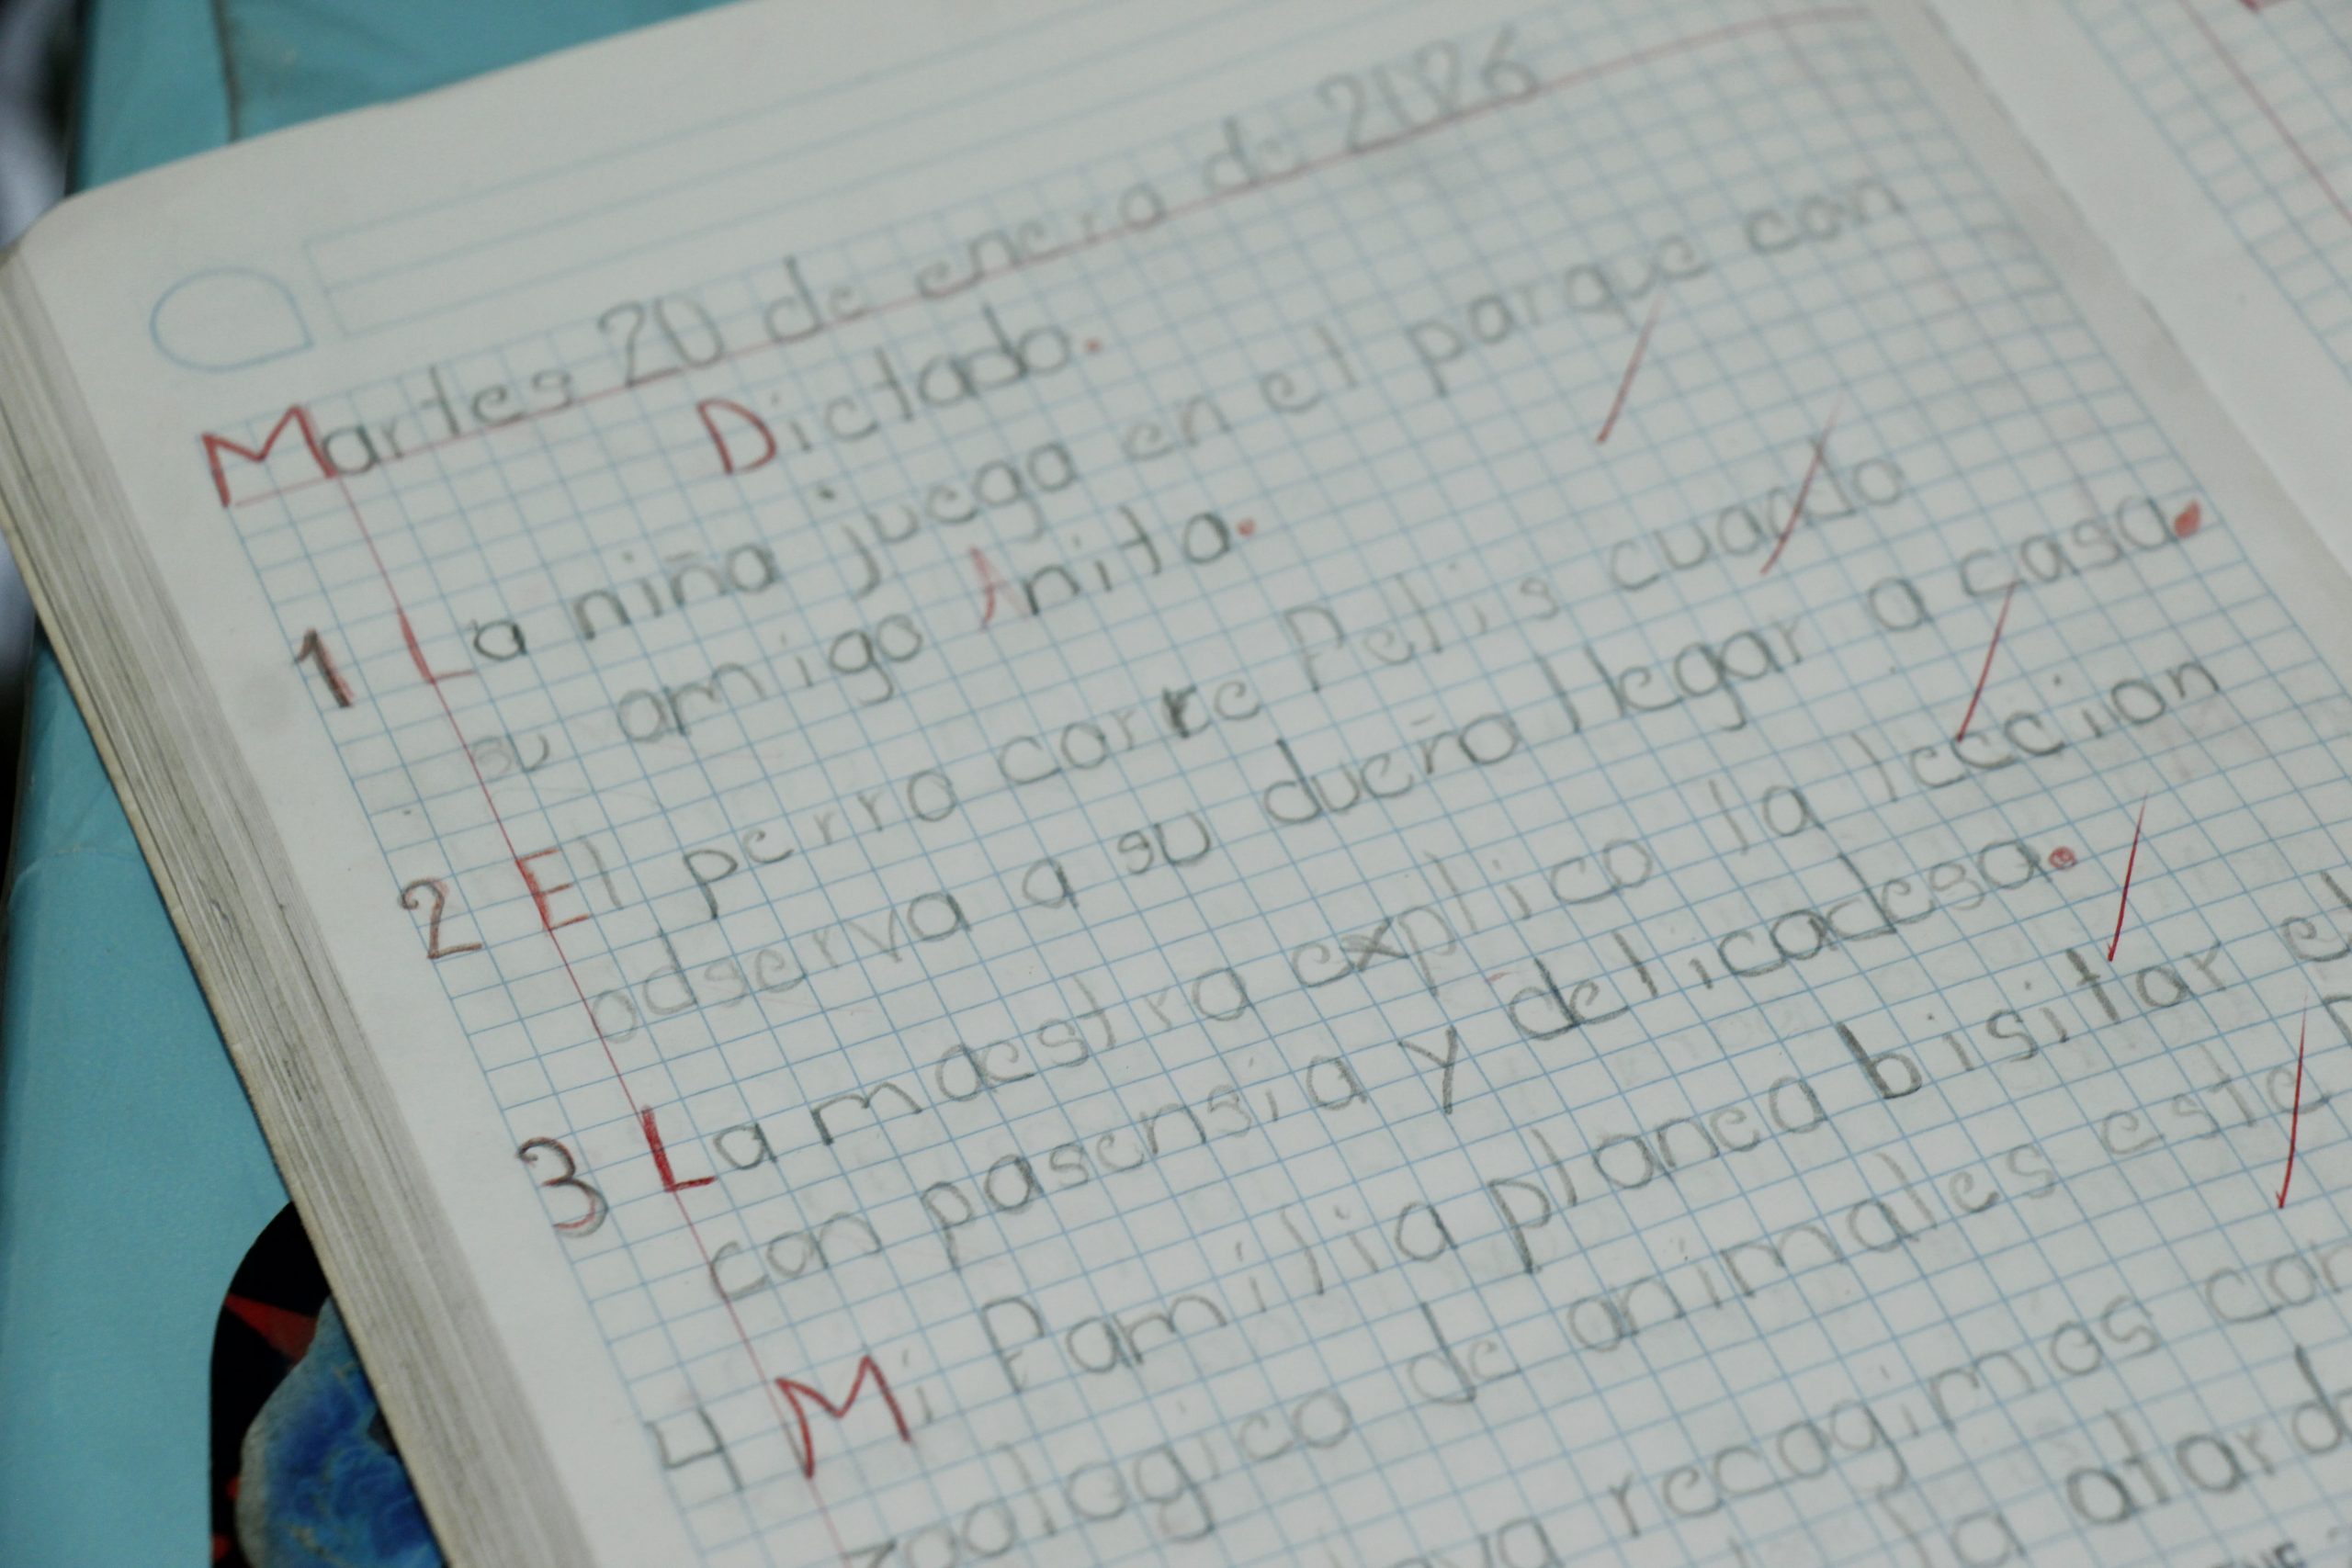 Martes 20 de enero de 2186
Dictado.
1 La niña juega en el parque con
su amigo Anita.
2 El perro corre Pelis cuando
odserva a su dueño llegar a casa.
3 La maestra explico la leccion
con pasensia y delicadesa.
4 Mi Pamilia planea bisitar el
zoologico de animales este
recogimos con
la atard